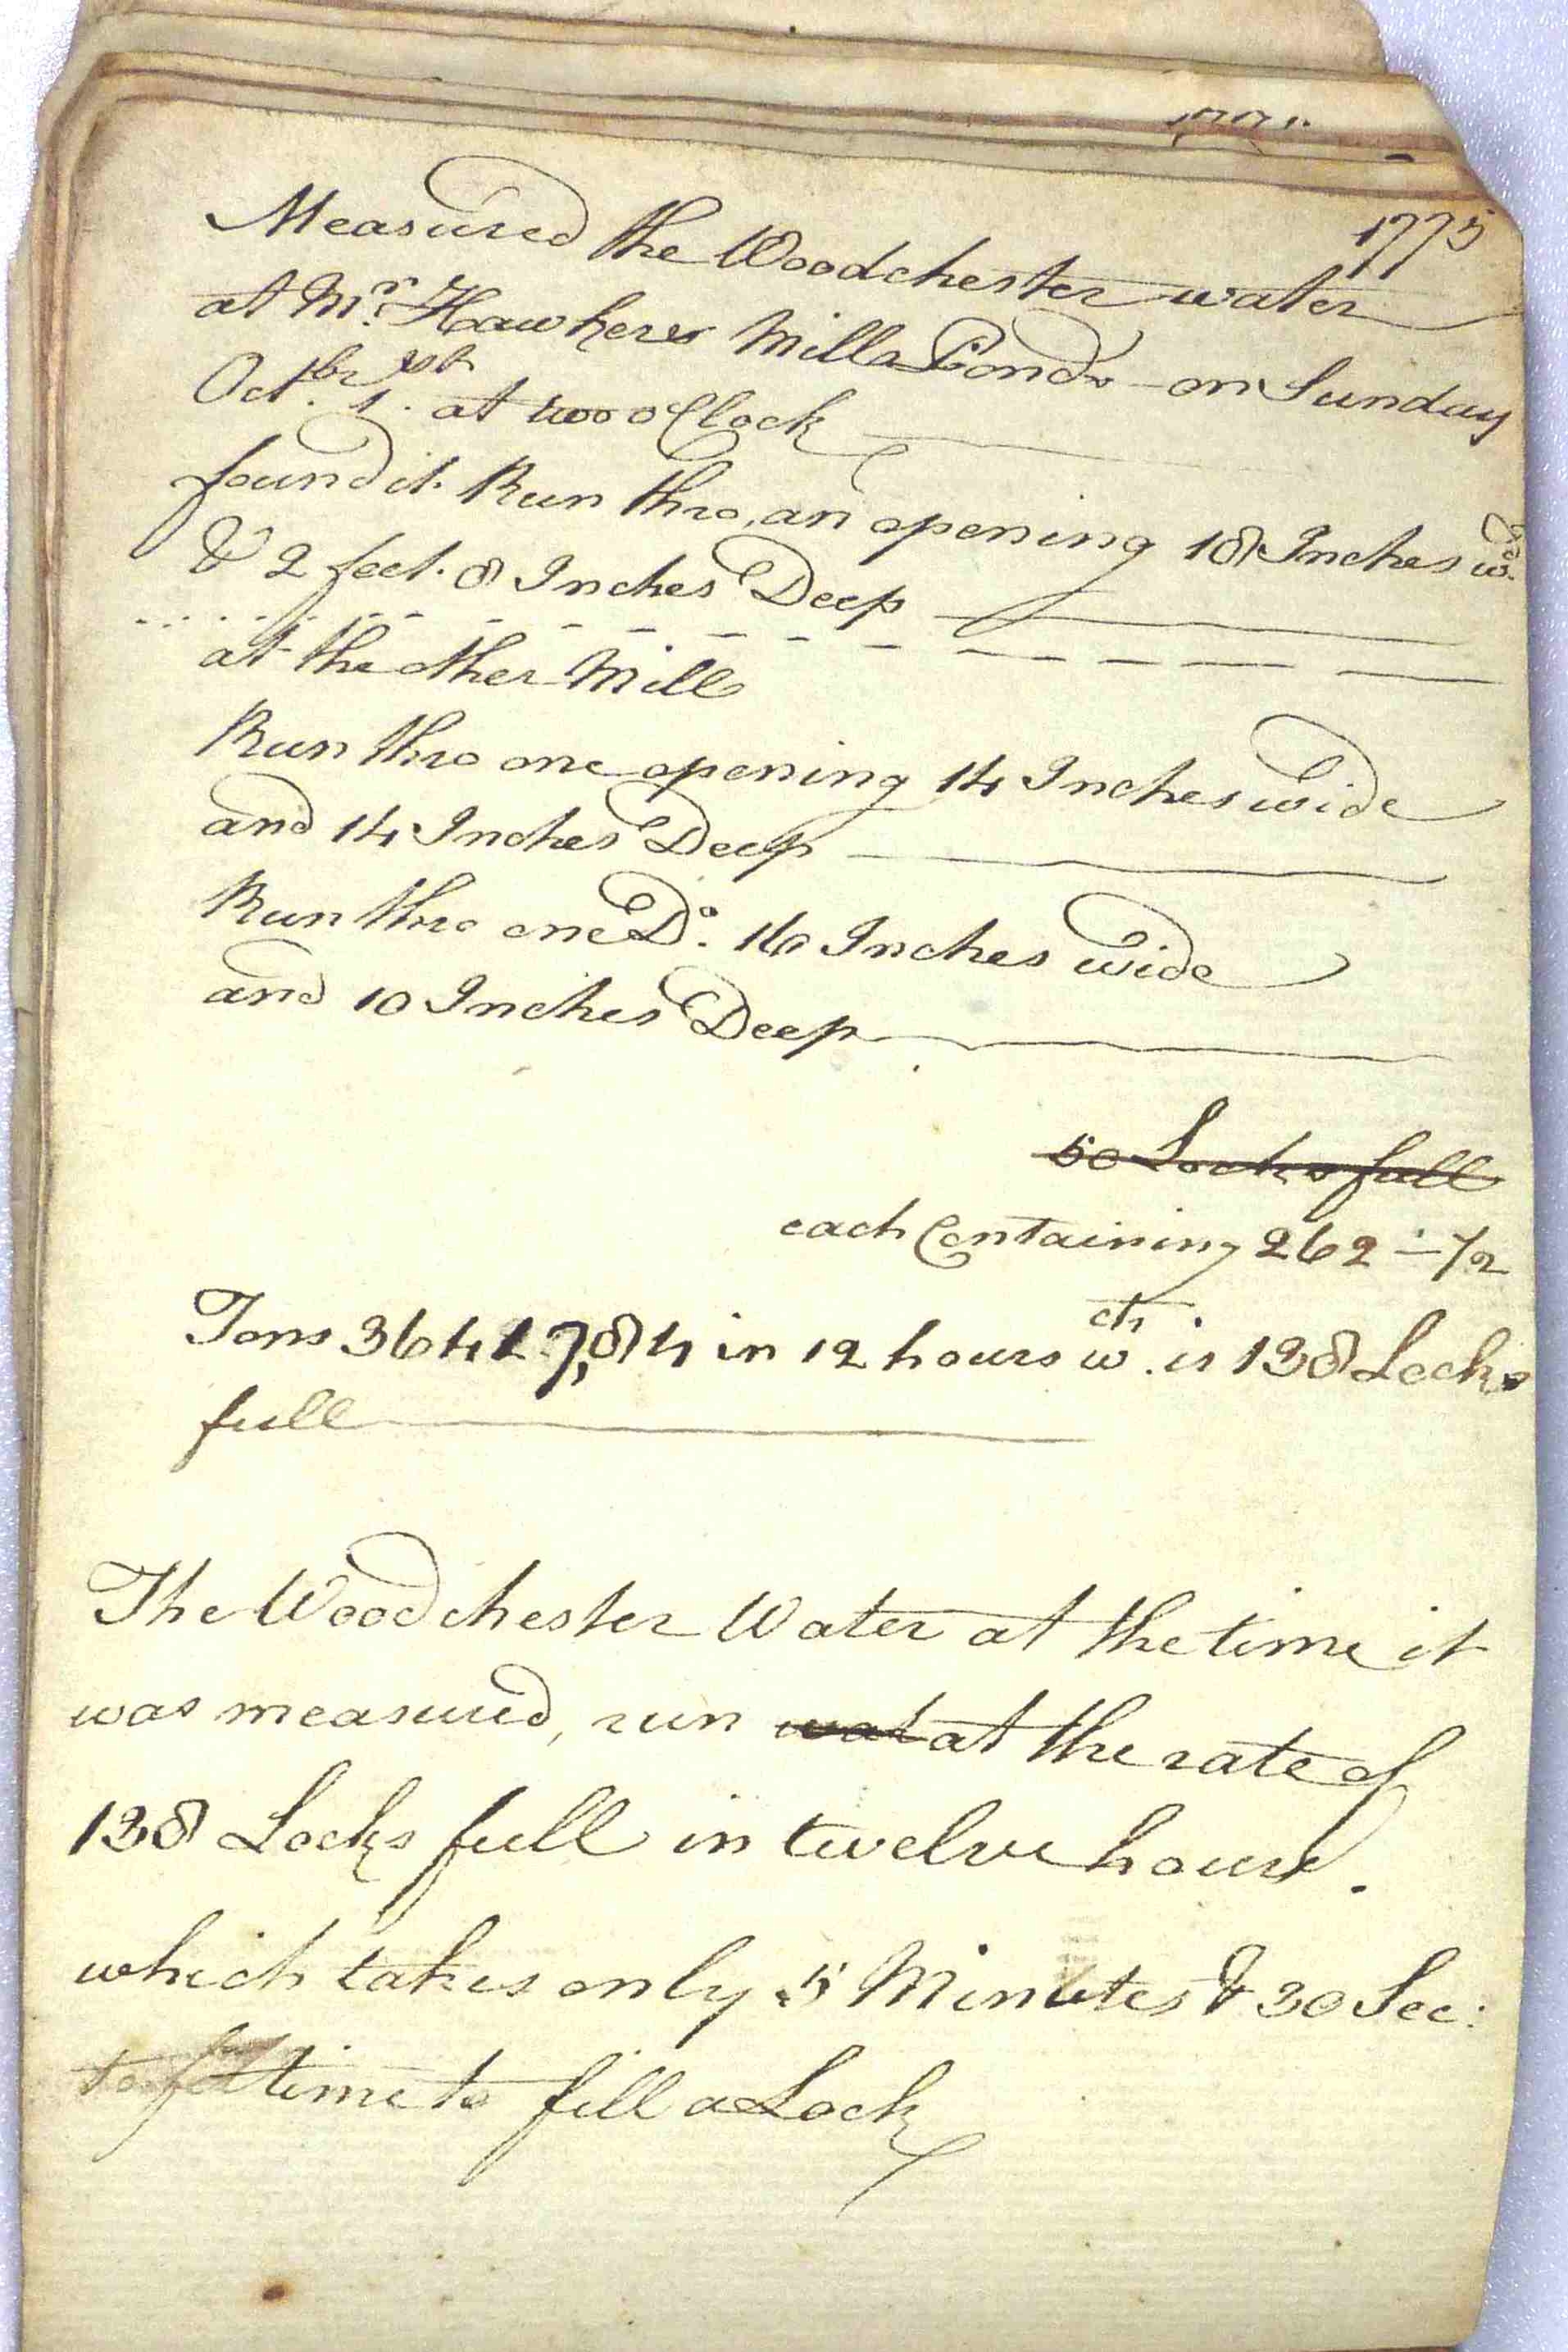 1775
Measured the Woodchester water
at Mr. Hawkers Mill Pond - on Sunday
Octbr. 1st. at two o Clock
found it Run thro an opening 18 Inches wd.
& 2 feet 8 Inches Deep
at the other Mill
Run thro one opening 14 Inches wide
and 14 Inches Deep
Run thro one Do. 16 Inches wide
and 10 Inches Deep
50 Locks full
each Containing 262 - 1/2
Tons in 12 hours wch. is 138 Locks
full
The Woodchester Water at the time it
was measured, run wat at the rate of
138 Locks full in twelve hours.
which takes only 5 Minutes & 30 Sec:
time to fill a Lock